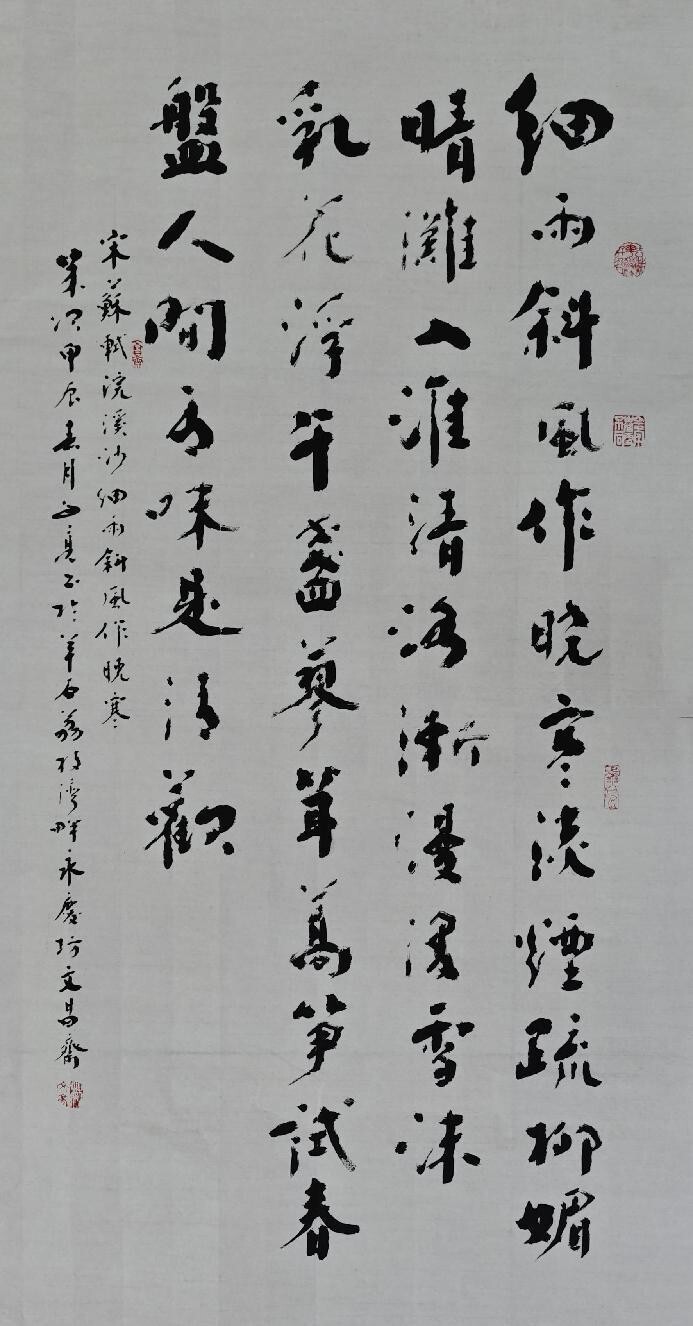 細雨斜風作晓寒淡煙疏柳媚
晴灘入淮清洛漸漫漫雪沫
乳花浮午盞蓼茸蒿笋試春
盤人間有味是清歡
宋蘇軾浣溪沙細雨斜風作晓寒
歲次甲辰春月書於羊石荔枝灣畔永慶坊文昌齋